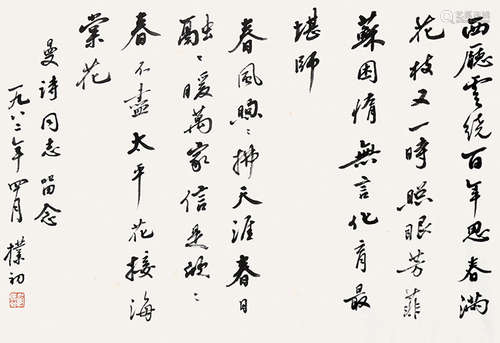 西廳雲繞百年思春滿
花枝又一時照眼芳菲
蘇困惰無言化育最
堪師
春風煦〻拂天涯春日
融〻暖萬家信是欣〻
春不盡太平花接海
棠花
曼诗同志留念
一九八二年四月 樸初